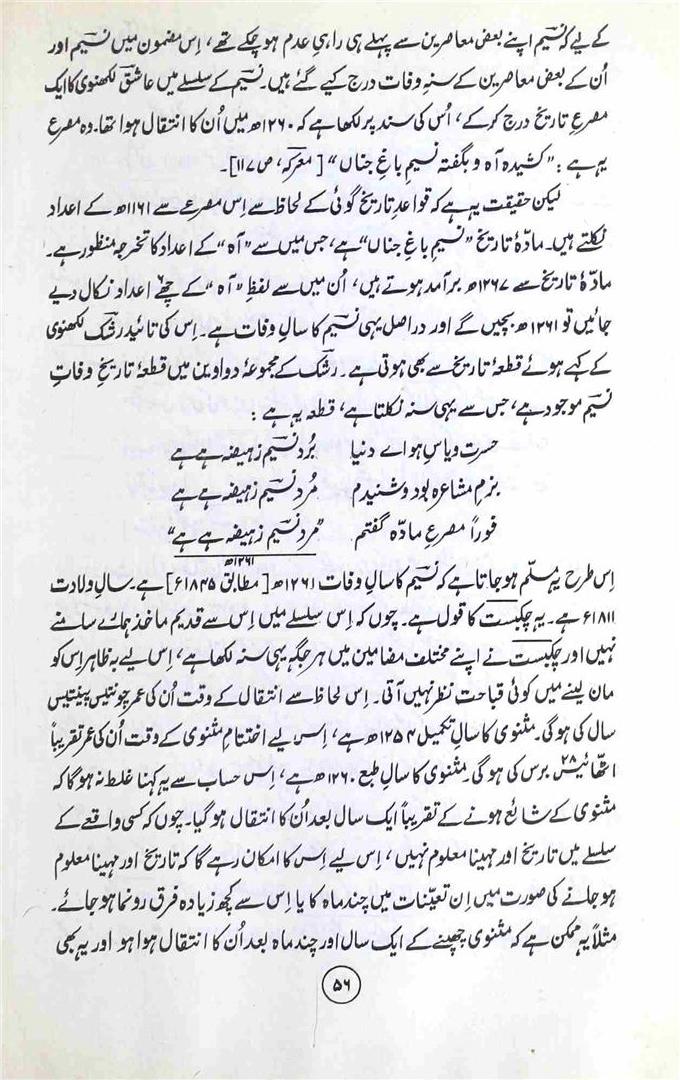 کے لیے کہ نسیم اپنے بعض معاصرین سے پہلے ہی راہیِ عدم ہو چکے تھے، اِس مضمون میں نسیم اور
اُن کے بعض معاصرین کے سنہِ وفات درج کیے گئے ہیں۔ نسیم کے سلسلے میں عاشق لکھنوی کا ایک
مصرعِ تاریخ درج کرکے، اُس کی سند پر لکھا ہے کہ ۱۲۶۰ھ میں اُن کا انتقال ہوا تھا۔ وہ مصرع
یہ ہے : "کشیدہ آہ و بگفتہ نسیمِ باغِ جناں" [معرکہ، ص ۱۱۷]۔
لیکن حقیقت یہ ہے کہ قواعدِ تاریخ گوئی کے لحاظ سے اِس مصرعے سے ۱۱۶۱ھ کے اعداد
نکلتے ہیں۔ مادّۂ تاریخ "نسیمِ باغِ جناں" ہے، جس میں سے "آہ" کے اعداد کا تخرجہ منظور ہے۔
مادّۂ تاریخ سے ۱۲۶۷ھ برآمد ہوتے ہیں، اُن میں سے لفظِ "آہ" کے چھے ۶ اعداد نکال دیے
جائیں تو ۱۲۶۱ھ بچیں گے اور دراصل یہی نسیم کا سالِ وفات ہے۔ اِس کی تائید رشک لکھنوی
کے کہے ہوئے قطعۂ تاریخ سے بھی ہوتی ہے۔ رشک کے مجموعۂ دواوین میں قطعۂ تاریخِ وفاتِ
نسیم موجود ہے، جس سے یہی سنہ نکلتا ہے، قطعہ یہ ہے :
حسرت و یاسِ ہواے دنیا بُرد نسیم زہیضہ ہے ہے
بزمِ مشاعرہ بود و شنیدم مُرد نسیم زہیضہ ہے ہے
فوراً مصرعِ مادّہ گفتم "مرد نسیم زہیضہ ہے ہے"
۱۲۶۱ھ
اِس طرح یہ مسلّم ہو جاتا ہے کہ نسیم کا سالِ وفات ۱۲۶۱ھ [مطابق ۱۸۴۵ء] ہے۔ سالِ ولادت
۱۸۱۱ء ہے۔ یہ چکبست کا قول ہے۔ چوں کہ اِس سلسلے میں اِس سے قدیم ماخذ ہمارے سامنے
نہیں اور چکبست نے اپنے مختلف مضامین میں ہر جگہ یہی سنہ لکھا ہے، اِس لیے بہ ظاہر اِس کو
مان لینے میں کوئی قباحت نظر نہیں آتی۔ اِس لحاظ سے انتقال کے وقت اُن کی عمر چونتیس پینتیس
سال کی ہوگی۔ مثنوی کا سالِ تکمیل ۱۲۵۴ھ ہے، اِس لیے اختتامِ مثنوی کے وقت اُن کی عمر تقریباً
اٹھائیس ۲۸ برس کی ہوگی۔ مثنوی کا سالِ طبع ۱۲۶۰ھ ہے، اِس حساب سے یہ کہنا غلط نہ ہوگا کہ
مثنوی کے شائع ہونے کے تقریباً ایک سال بعد اُن کا انتقال ہو گیا۔ چوں کہ کسی واقعے کے
سلسلے میں تاریخ اور مہینا معلوم نہیں، اِس لیے اِس کا امکان رہے گا کہ تاریخ اور مہینا معلوم
ہو جانے کی صورت میں اِن تعیّنات میں چند ماہ کا یا اِس سے کچھ زیادہ فرق رونما ہو جائے۔
مثلاً یہ ممکن ہے کہ مثنوی چھپنے کے ایک سال اور چند ماہ بعد اُن کا انتقال ہوا ہو اور یہ بھی
۵۶